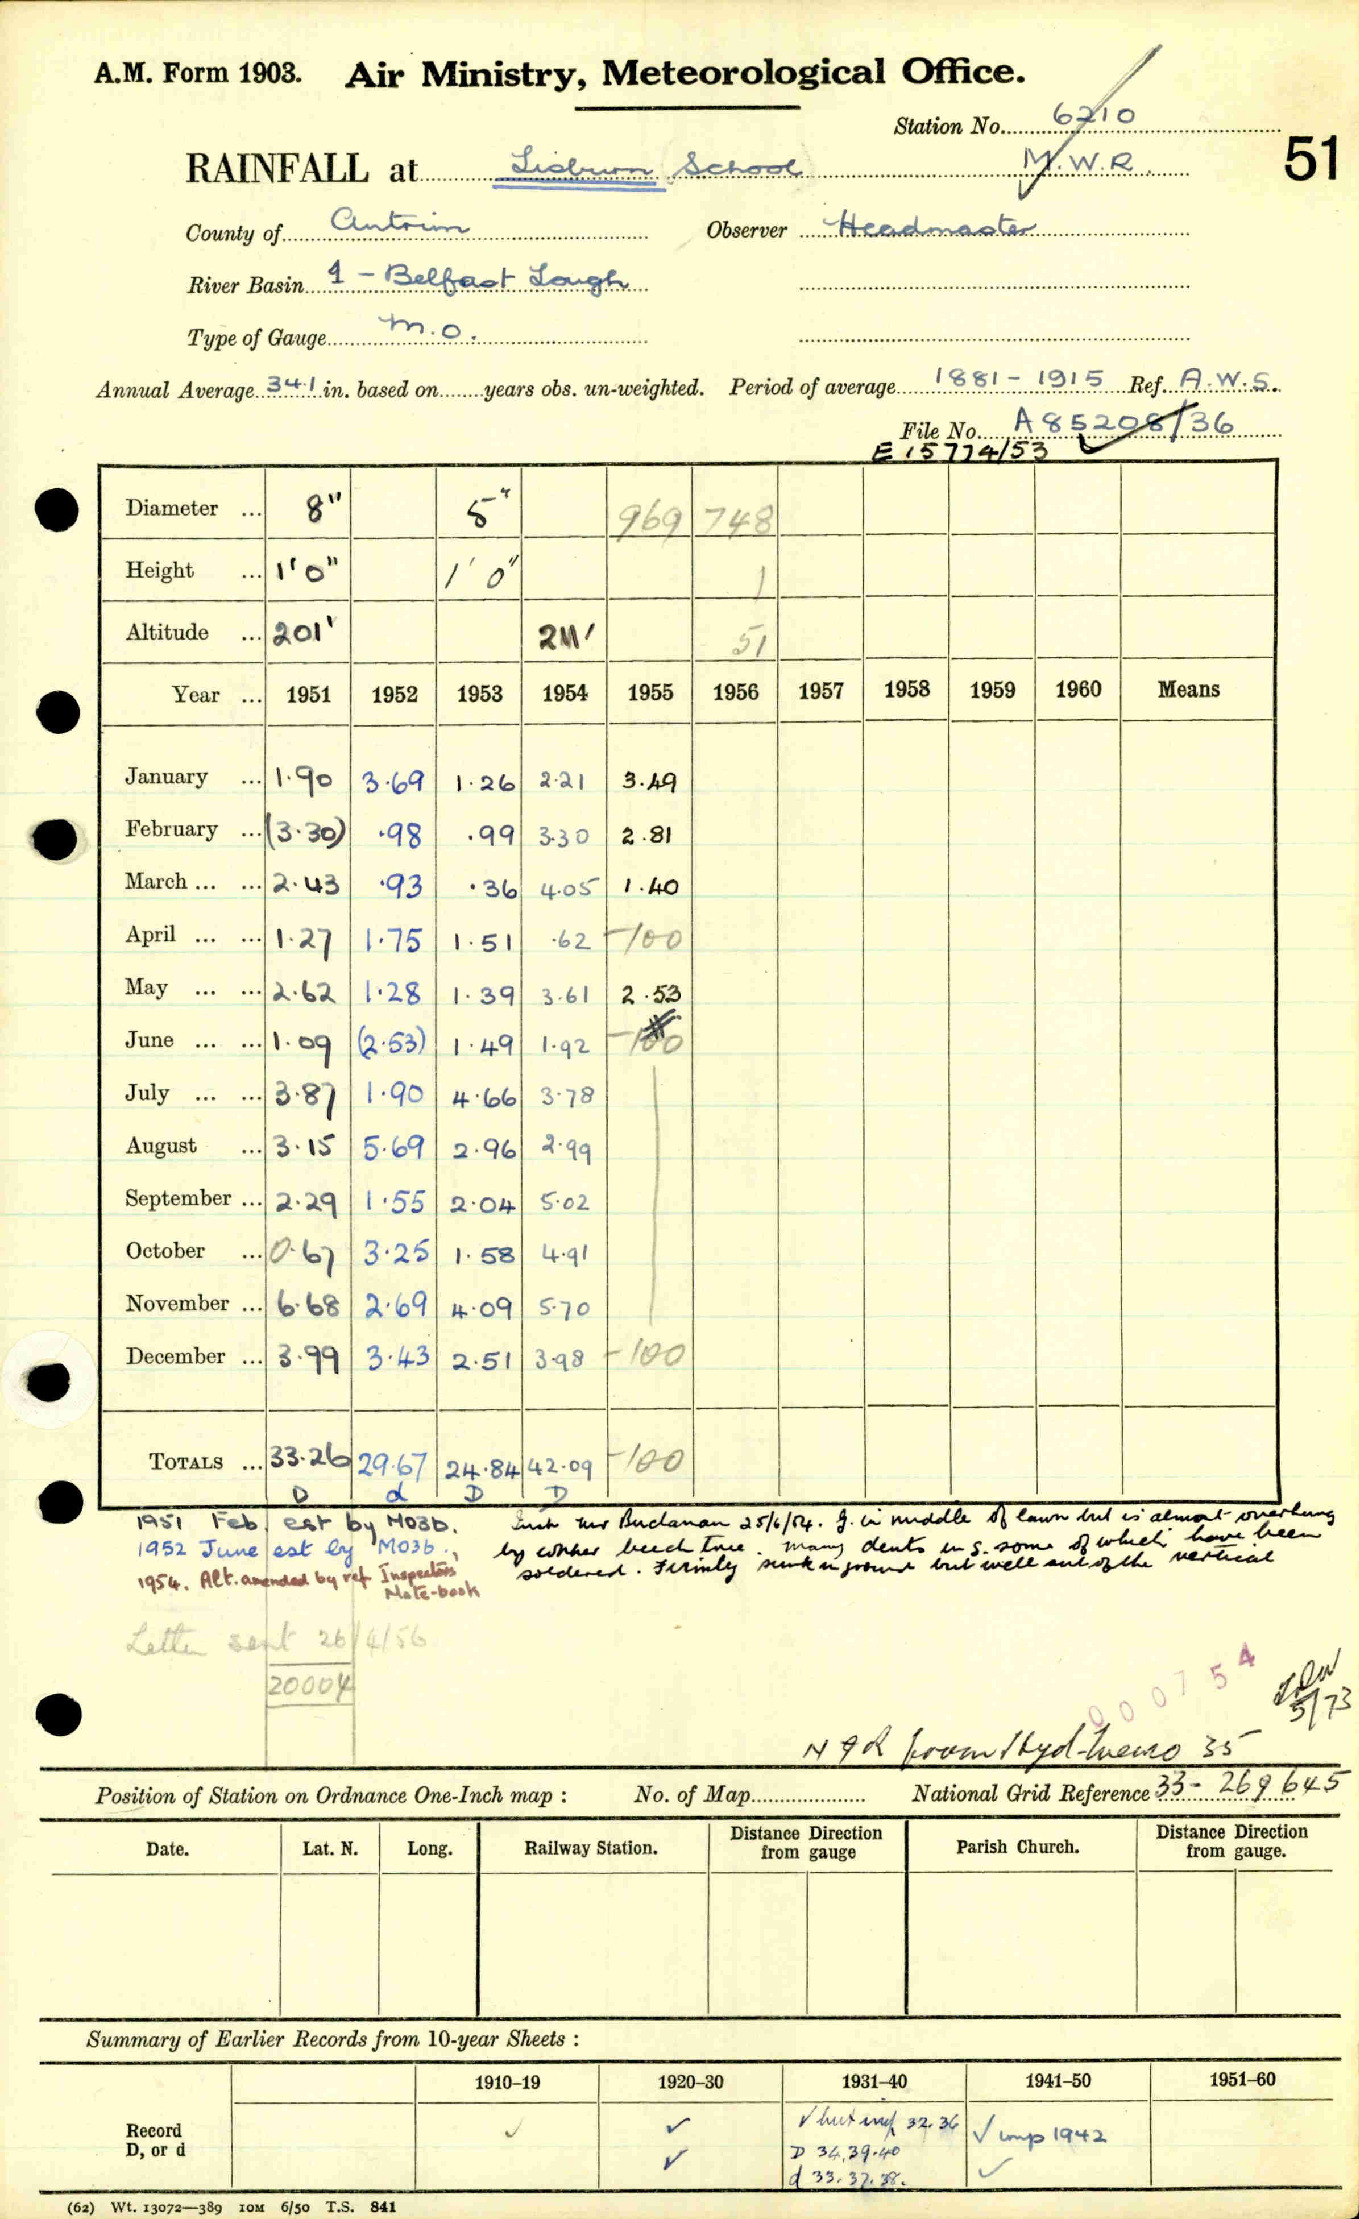 A.M. Form 1903. Air Ministry, Meteorological Office.
Station No. 6210
RAINFALL at Lisburn (School) M.W.R. 51
County of Antrim Observer Headmaster
River Basin 1 - Belfast Lough
Type of Gauge M.O.
Annual Average 34.1 in. based on ........ years obs. un-weighted. Period of average 1881-1915 Ref. A.W.S.
File No. A85208/36
E 15774/53
Diameter ... 8" 5" 969 748
Height ... 1'0" 1'0" 1
Altitude ... 201' 211' 51
Year ... 1951 1952 1953 1954 1955 1956 1957 1958 1959 1960 Means
January ... 1.90 3.69 1.26 2.21 3.49
February ... (3.30) .98 .99 3.30 2.81
March ... ... 2.43 .93 .36 4.05 1.40
April ... ... 1.27 1.75 1.51 .62 -100
May ... ... 2.62 1.28 1.39 3.61 2.53
June ... ... 1.09 (2.53) 1.49 1.92 -100
July ... ... 3.87 1.90 4.66 3.78
August ... 3.15 5.69 2.96 2.99
September ... 2.29 1.55 2.04 5.02
October ... 0.67 3.25 1.58 4.91
November ... 6.68 2.69 4.09 5.70
December ... 3.99 3.43 2.51 3.98 -100
TOTALS ... 33.26 29.67 24.84 42.09 -100
D d D D
1951 Feb. est by MO3b.
1952 June est by MO3b.,
1954. Alt. amended by ref Inspectors Note-book
Mr Buchanan 25/6/54. g. in middle of lawn but is almost overhung
by copper beech tree. Many dents in g. some of which have been
soldered. Firmly sunk in ground but well out of the vertical
Letter sent 26/4/56
20004
000754
5/73
NGR from Hyd. Memo 35
Position of Station on Ordnance One-Inch map : No. of Map........ National Grid Reference 33- 269645
Date. Lat. N. Long. Railway Station. Distance from gauge Direction Parish Church. Distance from gauge. Direction
Summary of Earlier Records from 10-year Sheets :
1910–19 1920–30 1931–40 1941–50 1951–60
Record ✓ ✓ ✓ but 32.36 ✓ imp 1942
D, or d ✓ D 34.39.40 ✓
d 33.37.38.
(62) Wt. 13072—389 10M 6/50 T.S. 841